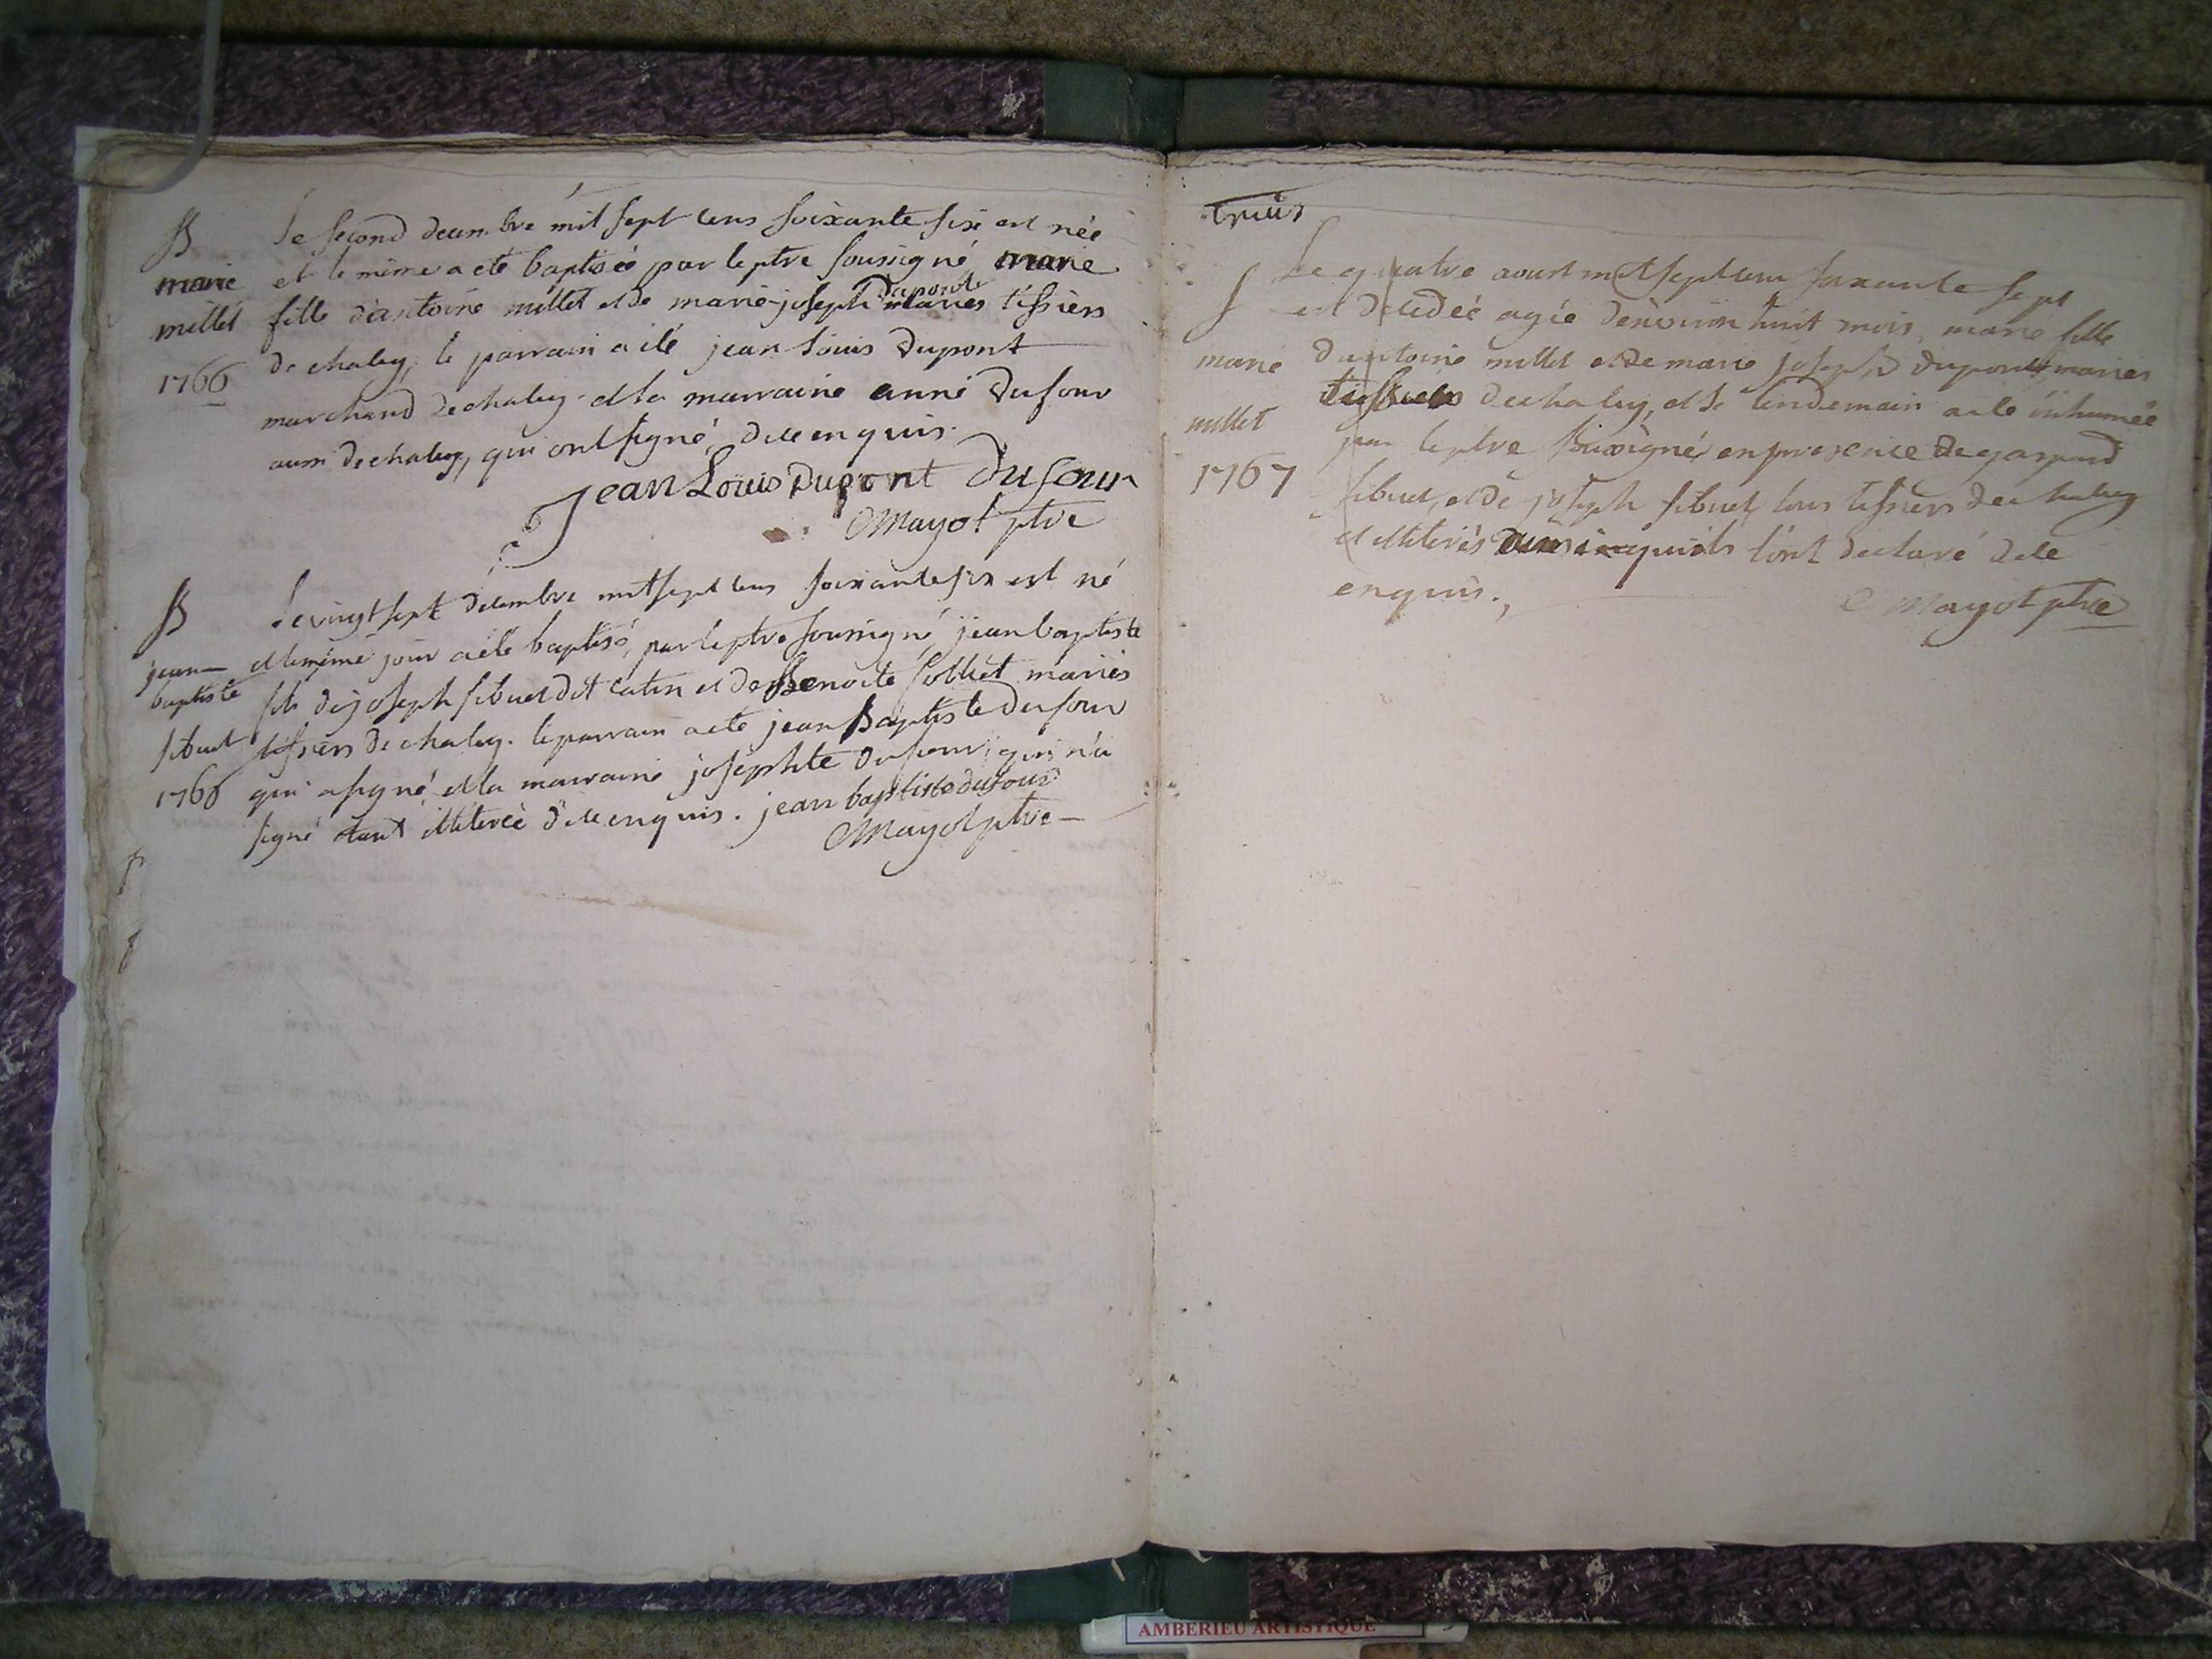 B
marie
millet
1766
Le second decembre mil sept cens soixante six est née
et le même a eté baptisée par le ptre soussigné marie
fille d'antoine millet et de marie-joseph duponte mariés tissiers
de chaley, le parrain a été jean Louis Dupont
marchand de chaley. et la marraine anne Dufour
aussi de chaley, qui ont signé, de ce enquis.
Jean Louis Dupont Dufour
Mayot ptre
B
jean
baptiste
sibuet
1766
Le vingt sept decembre mil sept cens soixante six est né
et le même jour a eté baptisé, par le ptre soussigné, jean baptiste
fils de joseph sibuet dit catin et de Benoite mariés
tissiers de chaley. le parrain a eté jean Baptiste Dufour
qui a signé, et la marraine josephte Dufour, qui n'a
signé etant illiterée de ce enquis. jean baptiste dufour
Mayot ptre
trois
S
marie
millet
1767
Le quatre aoust mil sept cens soixante sept
est decedeé agée d'environ huit mois, marie fille
d'antoine millet et de marie joseph dupont mariés
tissiers de chaley, et le lendemain a eté inhumée
par le ptre soussigné, en presence de gaspard
sibuet, et de joseph sibuet tous tissiers de chaley
et illiterés ainsi qu'ils l'ont declaré de ce
enquis.
Mayot ptre
AMBERIEU ARTISTIQUE